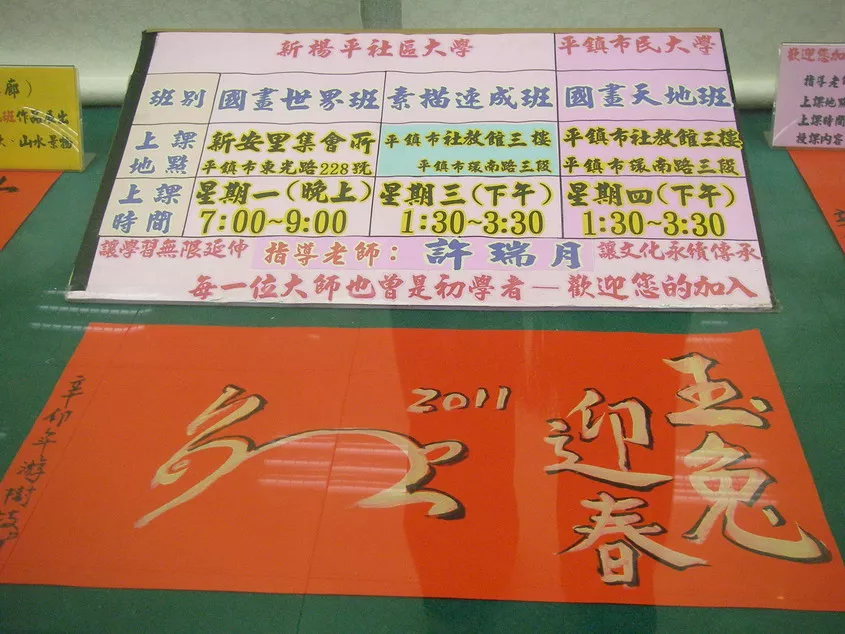 新楊平社區大學 平鎮市民大學
班別 國畫世界班 素描速成班 國畫天地班
上課地點 新安里集會所 平鎮市社教館三樓 平鎮市社教館三樓
平鎮市東光路228號 平鎮市環南路三段 平鎮市環南路三段
上課時間 星期一(晚上) 星期三(下午) 星期四(下午)
7:00~9:00 1:30~3:30 1:30~3:30
讓學習無限延伸 指導老師: 許瑞月 讓文化永續傳承
每一位大師也曾是初學者—歡迎您的加入
廊)
班作品展出
山水景物
歡迎您加
指導老
上課地
上課時間
授課內容
玉兔
迎春
2011
辛卯年游